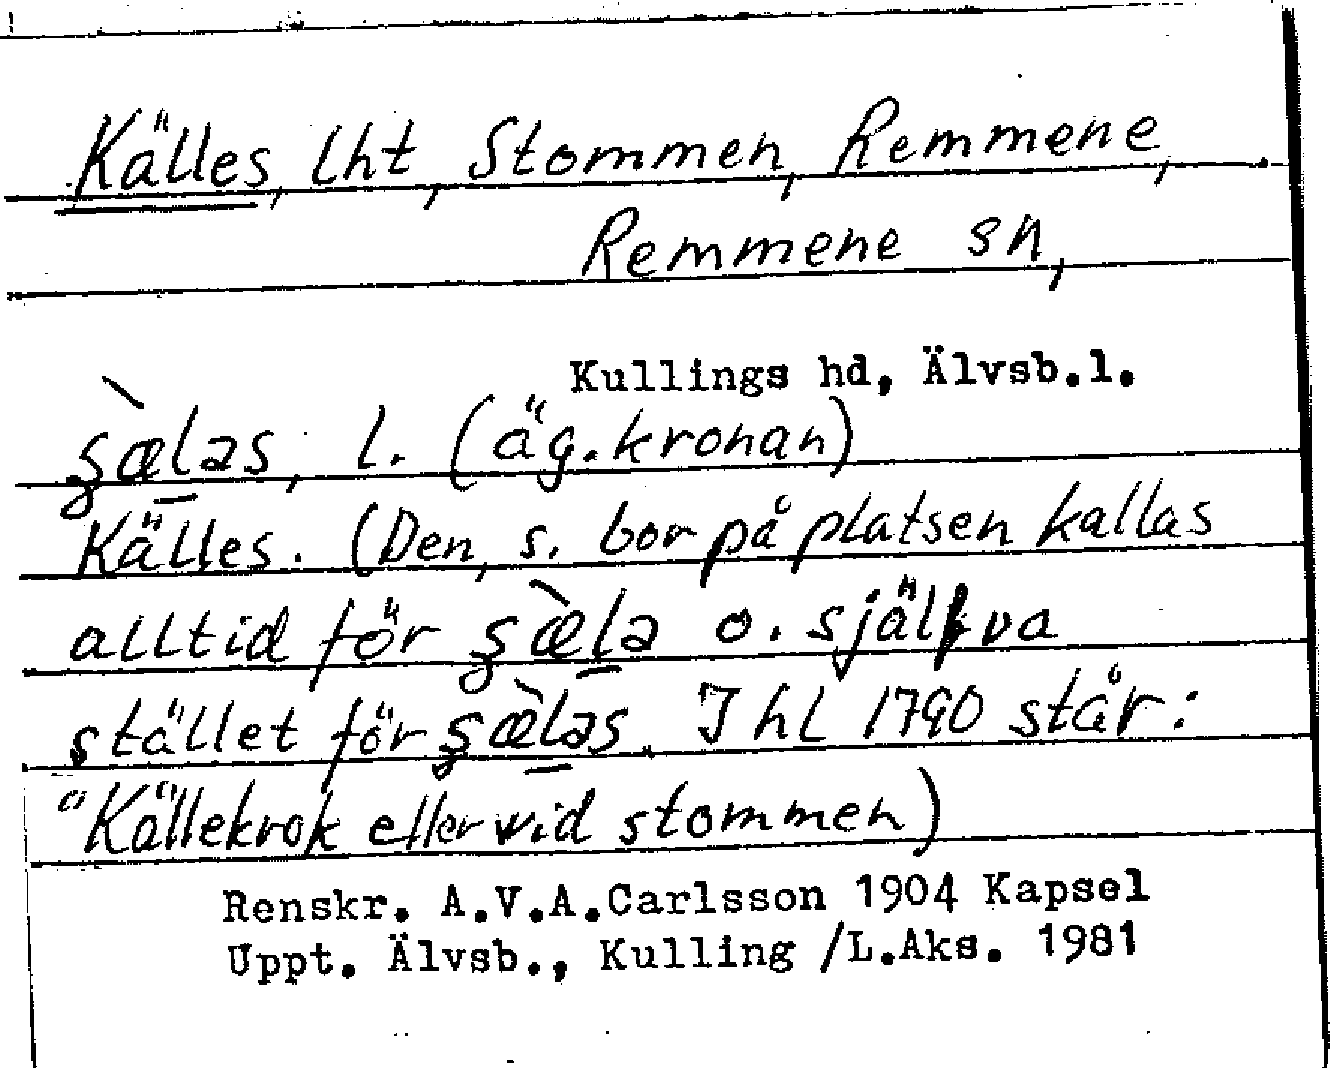 Källes, lht, Stommen, Remmene,
Remmene sn,
Kullings hd, Älvsb.l.
ʂæ̀l̠əs, l. (äg. kronan)
Källes. (Den, s. bor på platsen kallas
alltid för ʂæ̀l̠ə o. själva
stället för ʂæ̀l̠əs. I hl 1790 står:
"Källekrok eller vid stommen)
Renskr. A.V.A.Carlsson 1904 Kapsel
Uppt. Älvsb., Kulling /L.Aks. 1981